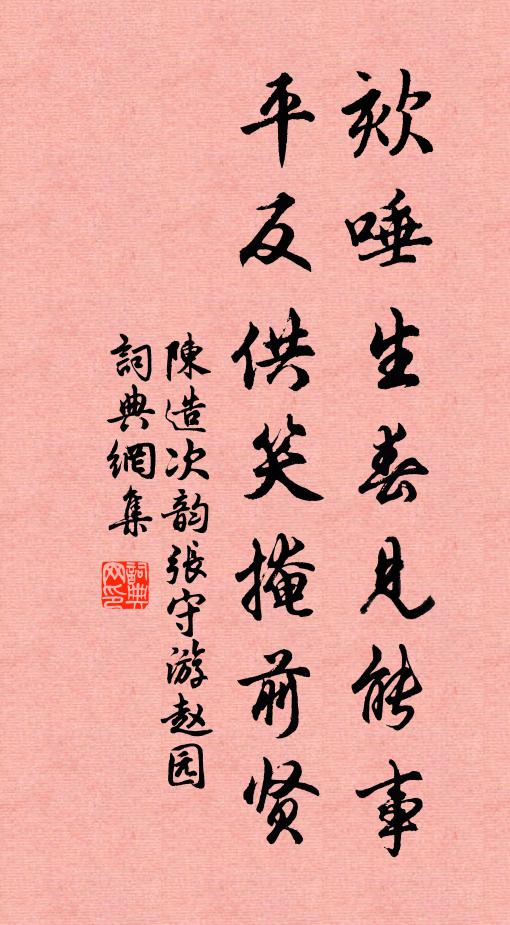 欬唾生春見能事
平反供笑掩前贤
陳造次韵張守游赵园
詞典網集
詞典网印